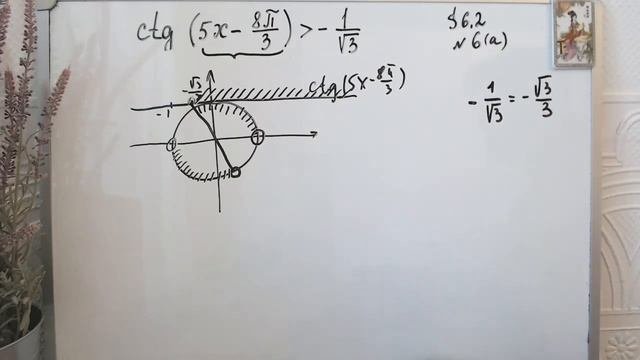 ctg (5x - 8π/3) > - 1/√3
§ 6.2
№ 6(a)
-√3/3
ctg(5x - 8π/3)
-1
- 1/√3 = - √3/3